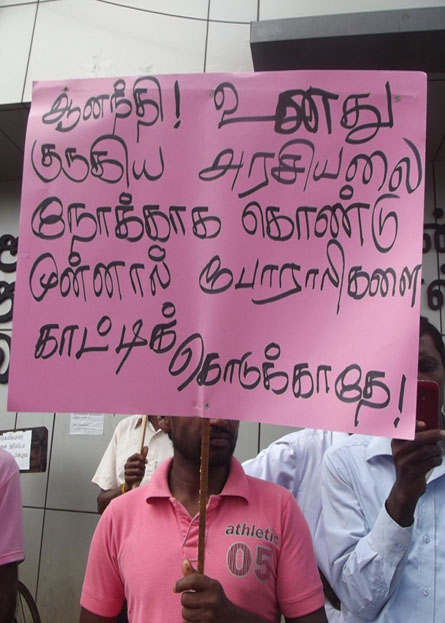 ஆனந்தி! உனது
குறுகிய அரசியலை
நோக்காக கொண்டு
முன்னால் போராளிகளை
காட்டிக்
கொடுக்காதே!
athletic
05